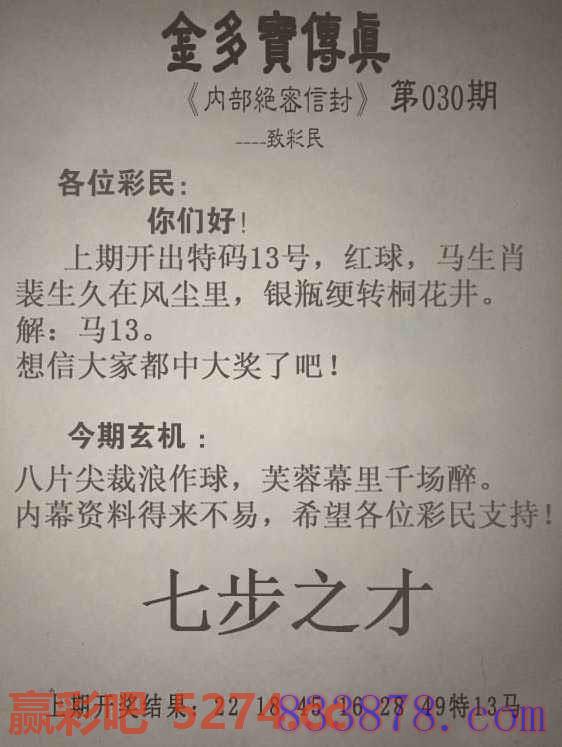 金多寶傳眞
《内部絕密信封》 第030期
----致彩民
各位彩民：
你们好！
上期开出特码13号，红球，马生肖
裴生久在风尘里，银瓶绠转桐花井。
解：马13。
想信大家都中大奖了吧！
今期玄机：
八片尖裁浪作球，芙蓉幕里千场醉。
内幕资料得来不易，希望各位彩民支持！
七步之才
上期开奖结果：22 18 45 16 28 49特13马
赢彩吧 5274.cc
833878.com